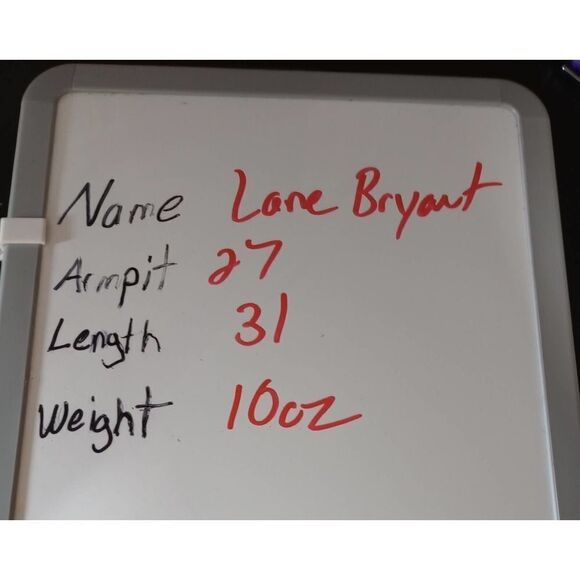 Name Lane Bryant
Armpit 27
Length 31
Weight 10oz